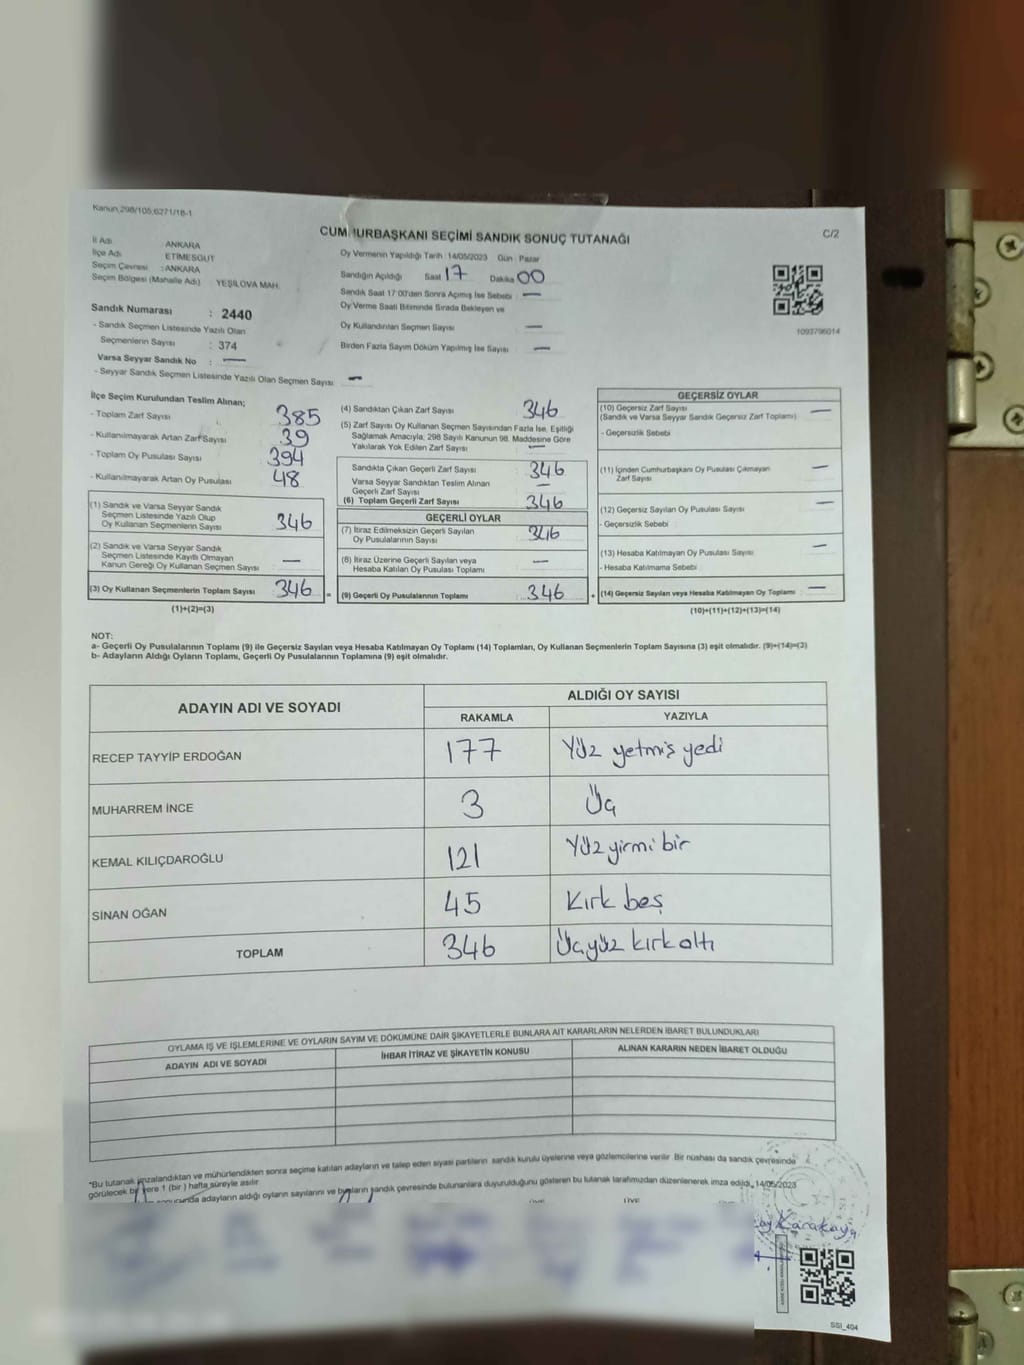 Kanun;298/105,6271/18-1
CUMHURBAŞKANI SEÇİMİ SANDIK SONUÇ TUTANAĞI
C/2
İl Adı : ANKARA
İlçe Adı : ETİMESGUT
Seçim Çevresi : ANKARA
Seçim Bölgesi (Mahalle Adı) YEŞİLOVA MAH.
Oy Vermenin Yapıldığı Tarih : 14/05/2023 Gün : Pazar
Sandığın Açıldığı Saat 17 Dakika 00
Sandık Saat 17:00'den Sonra Açımış İse Sebebi : —
Oy Verme Saati Bitiminde Sırada Bekleyen ve
Oy Kullandırılan Seçmen Sayısı —
Birden Fazla Sayım Döküm Yapılmış İse Sayısı —
1093796014
Sandık Numarası : 2440
- Sandık Seçmen Listesinde Yazılı Olan
Seçmenlerin Sayısı : 374
Varsa Seyyar Sandık No : —
- Seyyar Sandık Seçmen Listesinde Yazılı Olan Seçmen Sayısı : —
İlçe Seçim Kurulundan Teslim Alınan;
- Toplam Zarf Sayısı 385
- Kullanılmayarak Artan Zarf Sayısı 39
- Toplam Oy Pusulası Sayısı 394
- Kullanılmayarak Artan Oy Pusulası 48
(1) Sandık ve Varsa Seyyar Sandık
Seçmen Listesinde Yazılı Olup
Oy Kullanan Seçmenlerin Sayısı 346
(2) Sandık ve Varsa Seyyar Sandık
Seçmen Listesinde Kayıtlı Olmayan
Kanun Gereği Oy Kullanan Seçmen Sayısı —
(3) Oy Kullanan Seçmenlerin Toplam Sayısı 346
(1)+(2)=(3)
(4) Sandıktan Çıkan Zarf Sayısı 346
(5) Zarf Sayısı Oy Kullanan Seçmen Sayısından Fazla İse, Eşitliği
Sağlamak Amacıyla, 298 Sayılı Kanunun 98. Maddesine Göre
Yakılarak Yok Edilen Zarf Sayısı —
Sandıkta Çıkan Geçerli Zarf Sayısı 346
Varsa Seyyar Sandıktan Teslim Alınan
Geçerli Zarf Sayısı —
(6) Toplam Geçerli Zarf Sayısı 346
GEÇERLİ OYLAR
(7) İtiraz Edilmeksizin Geçerli Sayılan
Oy Pusulalarının Sayısı 346
(8) İtiraz Üzerine Geçerli Sayılan veya
Hesaba Katılan Oy Pusulası Toplamı —
= (9) Geçerli Oy Pusulalarının Toplamı 346 +
GEÇERSİZ OYLAR
(10) Geçersiz Zarf Sayısı —
(Sandık ve Varsa Seyyar Sandık Geçersiz Zarf Toplamı)
- Geçersizlik Sebebi
(11) İçinden Cumhurbaşkanı Oy Pusulası Çıkmayan
Zarf Sayısı —
(12) Geçersiz Sayılan Oy Pusulası Sayısı —
- Geçersizlik Sebebi
(13) Hesaba Katılmayan Oy Pusulası Sayısı —
- Hesaba Katılmama Sebebi
(14) Geçersiz Sayılan veya Hesaba Katılmayan Oy Toplamı —
(10)+(11)+(12)+(13)=(14)
NOT:
a- Geçerli Oy Pusulalarının Toplamı (9) ile Geçersiz Sayılan veya Hesaba Katılmayan Oy Toplamı (14) Toplamları, Oy Kullanan Seçmenlerin Toplam Sayısına (3) eşit olmalıdır. (9)+(14)=(3)
b- Adayların Aldığı Oyların Toplamı, Geçerli Oy Pusulalarının Toplamına (9) eşit olmalıdır.
ADAYIN ADI VE SOYADI
ALDIĞI OY SAYISI
RAKAMLA YAZIYLA
RECEP TAYYİP ERDOĞAN 177 Yüz yetmiş yedi
MUHARREM İNCE 3 Üç
KEMAL KILIÇDAROĞLU 121 Yüz yirmi bir
SİNAN OĞAN 45 Kırk beş
TOPLAM 346 Üçyüz kırk altı
OYLAMA İŞ VE İŞLEMLERİNE VE OYLARIN SAYIM VE DÖKÜMÜNE DAİR ŞİKAYETLERLE BUNLARA AİT KARARLARIN NELERDEN İBARET BULUNDUKLARI
ADAYIN ADI VE SOYADI İHBAR İTİRAZ VE ŞİKAYETİN KONUSU ALINAN KARARIN NEDEN İBARET OLDUĞU
*Bu tutanak imzalandıktan ve mühürlendikten sonra seçime katılan adayların ve talep eden siyasi partilerin sandık kurulu üyelerine veya gözlemcilerine verilir. Bir nüshası da sandık çevresinde
görülecek bir yere 1 (bir) hafta süreyle asılır.
sonucunda adayların aldığı oyların sayılarını ve bunların sandık çevresinde bulunanlara duyurulduğunu gösteren bu tutanak tarafımızdan düzenlenerek imza edildi. 14/05/2023
ÜYE ÜYE
Karakaya
SSI_404